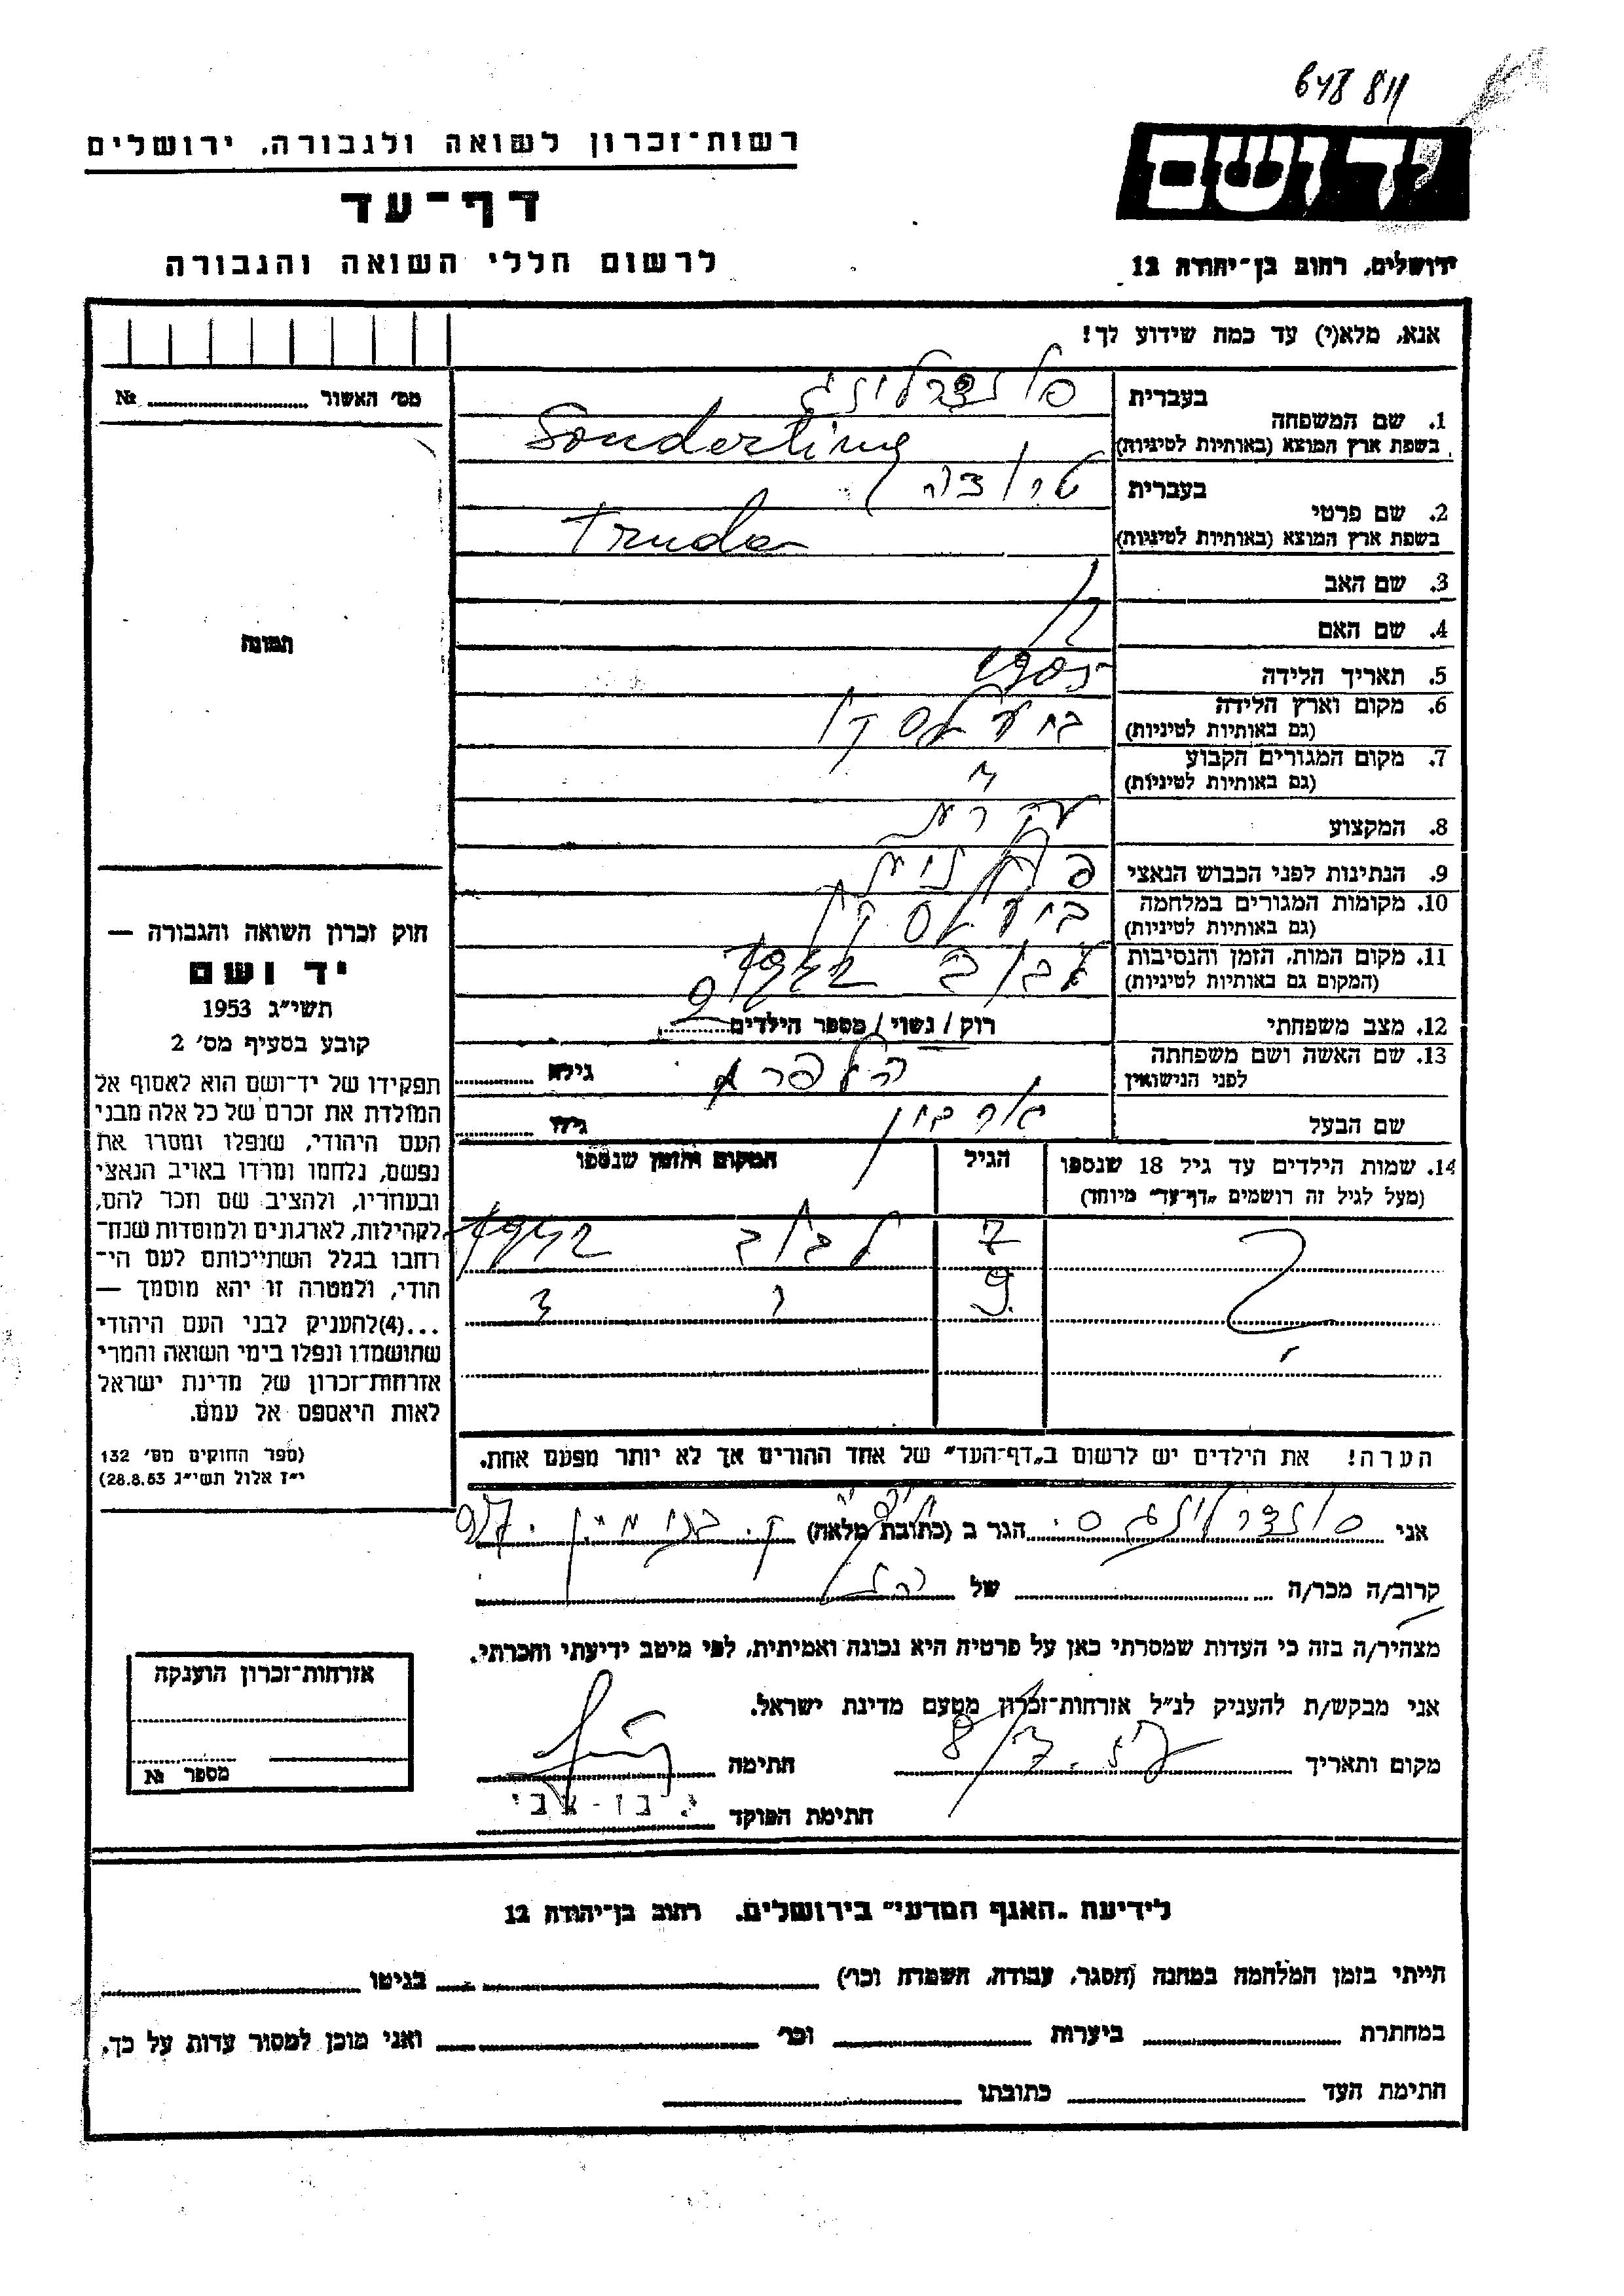 648 811
רשות־זכרון לשואה ולגבורה, ירושלים
דף־עד
לרשום חללי השואה והגבורה
יד ושם
ירושלים, רחוב בן־יהודה 12
אנא, מלא(י) עד כמה שידוע לך!
מס' האשור № 
תמונה
1. שם המשפחה
בעברית סונדרלינג
בשפת ארץ המוצא (באותיות לטיניות) Sonderling
2. שם פרטי
בעברית טרודה
בשפת ארץ המוצא (באותיות לטיניות) Truda
3. שם האב
4. שם האם
5. תאריך הלידה 1905
6. מקום וארץ הלידה
(גם באותיות לטיניות)
7. מקום המגורים הקבוע
(גם באותיות לטיניות)
8. המקצוע עקרת
9. הנתינות לפני הכבוש הנאצי פולנית
10. מקומות המגורים במלחמה
(גם באותיות לטיניות)
11. מקום המות, הזמן והנסיבות לבוב 1942
(המקום גם באותיות לטיניות)
12. מצב משפחתי רוק / נשוי / מספר הילדים 2
13. שם האשה ושם משפחתה
לפני הנישואין הלפרן גילא
שם הבעל גילו
14. שמות הילדים עד גיל 18 שנספו הגיל המקום והזמן שנספו
(מעל לגיל זה רושמים "דף־עד" מיוחד)
7 לבוב 1942
9
הערה! את הילדים יש לרשום ב"דף־העד" של אחד ההורים אך לא יותר מפעם אחת.
חוק זכרון השואה והגבורה —
יד ושם
תשי"ג 1953
קובע בסעיף מס' 2
תפקידו של יד־ושם הוא לאסוף אל
המולדת את זכרם של כל אלה מבני
העם היהודי, שנפלו ומסרו את
נפשם, נלחמו ומרדו באויב הנאצי
ובעוזריו, ולהציב שם וזכר להם,
לקהילות, לארגונים ולמוסדות שנח־
רבו בגלל השתייכותם לעם הי־
הודי, ולמטרה זו יהא מוסמך —
...(4) להעניק לבני העם היהודי
שהושמדו ונפלו בימי השואה והמרי
אזרחות־זכרון של מדינת ישראל
לאות היאספם אל עמם.
(ספר החוקים מס' 132
י"ז אלול תשי"ג 28.8.53)
אני סונדרלינג ס. הגר ב (כתובת מלאה) ק. בנימין
קרוב/ה מכר/ה של
מצהיר/ה בזה כי העדות שמסרתי כאן על פרטיה היא נכונה ואמיתית, לפי מיטב ידיעתי והכרתי.
אני מבקש/ת להעניק לנ"ל אזרחות־זכרון מטעם מדינת ישראל.
מקום ותאריך חתימה
חתימת הפוקד י. בן-צבי
אזרחות־זכרון הוענקה
מספר №
לידיעת "האגף המדעי" בירושלים. רחוב בן־יהודה 12
הייתי בזמן המלחמה במחנה (הסגר, עבודה, השמדה וכו') בגיטו
במחתרת ביערות וכו' ואני מוכן למסור עדות על כך.
חתימת העד כתובתו